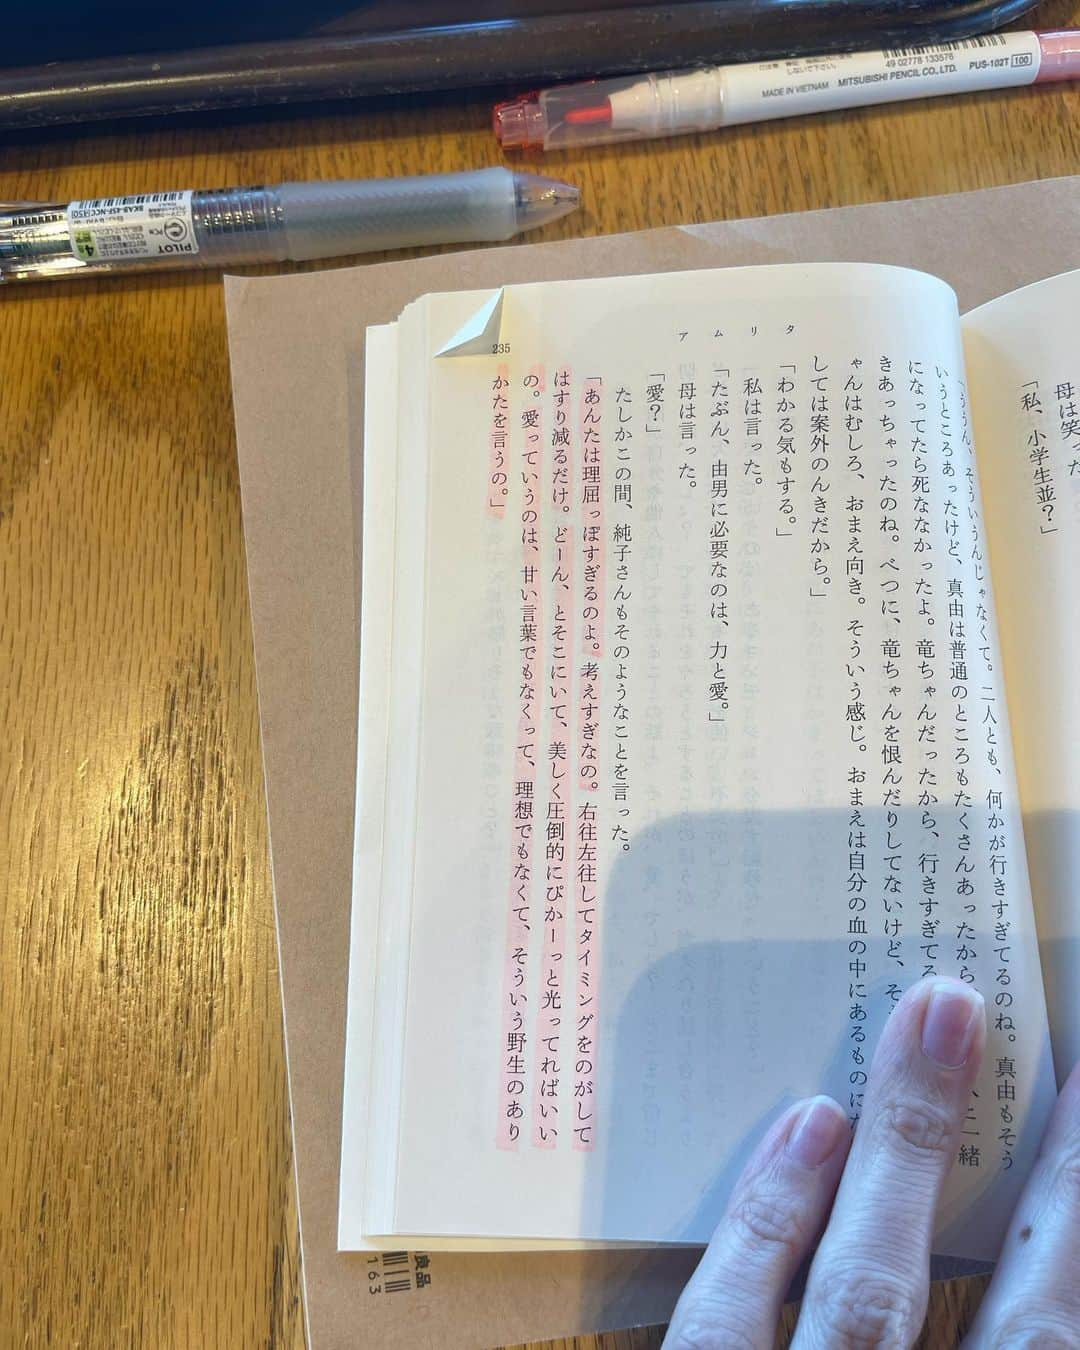 母は笑った
「私、小学生並？」
「ううん、そういうんじゃなくて。二人とも、何かが行きすぎてるのね。真由もそう
いうところあったけど、真由は普通のところもたくさんあったから
になってたら死ななかったよ。竜ちゃんだったから、行きすぎてる
きあっちゃったのね。べつに、竜ちゃんを恨んだりしてないけど、そ
ゃんはむしろ、おまえ向き。そういう感じ。おまえは自分の血の中にあるものにた
しては案外のんきだから。」
「わかる気もする。」
私は言った。
「たぶん、由男に必要なのは、力と愛。」
母は言った。
「愛？」
たしかこの間、純子さんもそのようなことを言った。
「あんたは理屈っぽすぎるのよ。考えすぎなの。右往左往してタイミングをのがして
はすり減るだけ。どーん、とそこにいて、美しく圧倒的にぴかーっと光ってればいい
の。愛っていうのは、甘い言葉でもなくって、理想でもなくて、そういう野生のあり
かたを言うの。」
アムリタ
235
49 02778 133576
MADE IN VIETNAM MITSUBISHI PENCIL CO., LTD. PUS-102T 100
PILOT
良品
163